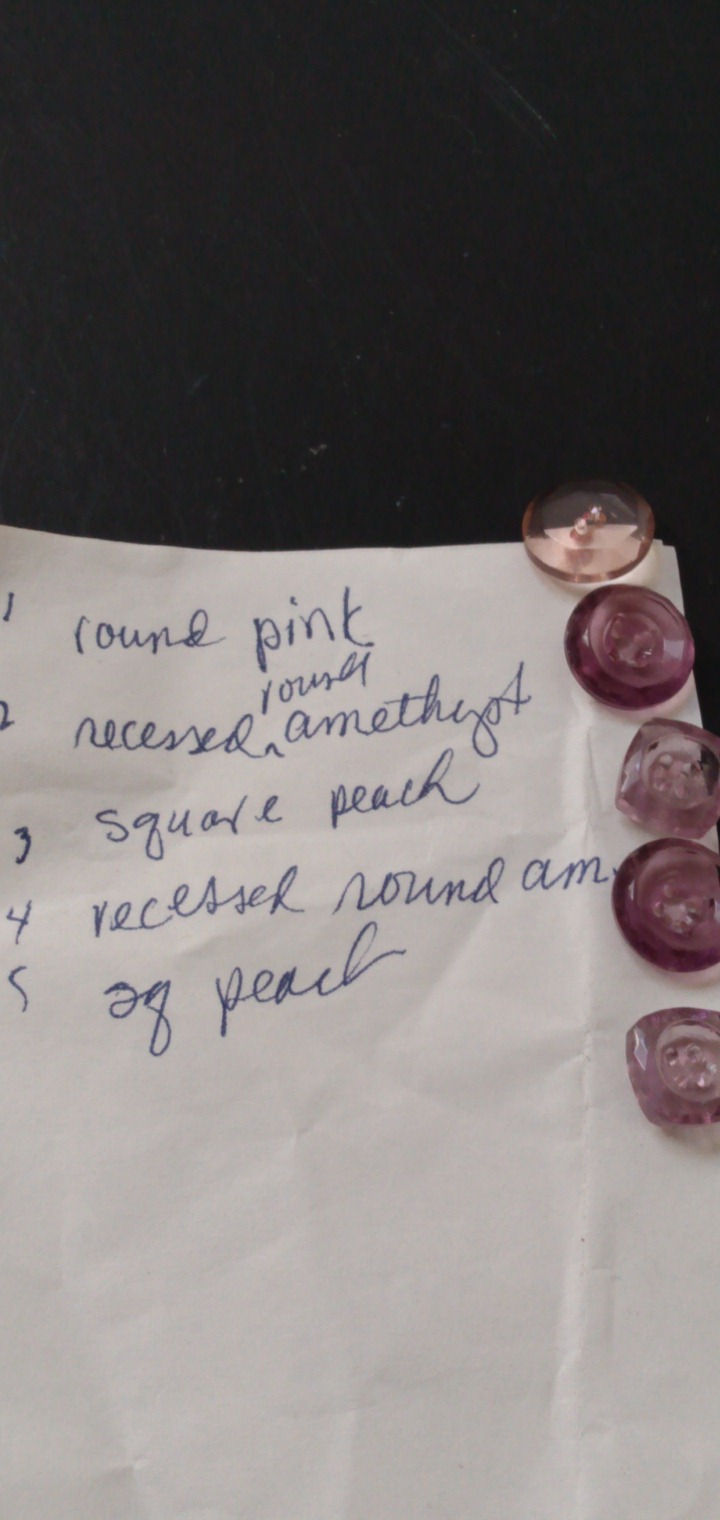 1 round pink
2 recessed ^ round amethyst
3 square peach
4 recessed round am.
5 sq peach